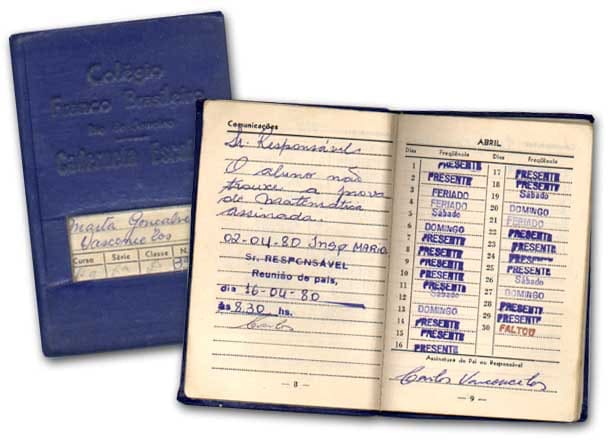 Colégio
Franco Brasileiro
Rio de Janeiro
Caderneta Escol
Marta Gonçalve
Vasconcelos
Curso Série Classe N.
Comunicações
Sr. Responsável
O aluno não
trouxe a prova
de Matemática
assinada.
02-04-80 Insp MARIO
Sr. RESPONSÁVEL
Reunião de pais,
dia 16-04-80
às 8,30 hs.
Carlos
— 8 —
ABRIL
Dias Freqüência Dias Freqüência
1 PRESENTE 17 PRESENTE
2 PRESENTE 18 PRESENTE
3 FERIADO 19 Sábado
4 FERIADO 20 DOMINGO
5 Sábado 21 FERIADO
6 DOMINGO 22 PRESENTE
7 PRESENTE 23 PRESENTE
8 PRESENTE 24 PRESENTE
9 PRESENTE 25 PRESENTE
10 PRESENTE 26 Sábado
11 PRESENTE 27 DOMINGO
12 Sábado 28 PRESENTE
13 DOMINGO 29 PRESENTE
14 PRESENTE 30 FALTOU
15 PRESENTE
16 PRESENTE
Assinatura do Pai ou Responsável
Carlos Vasconcelos
— 9 —